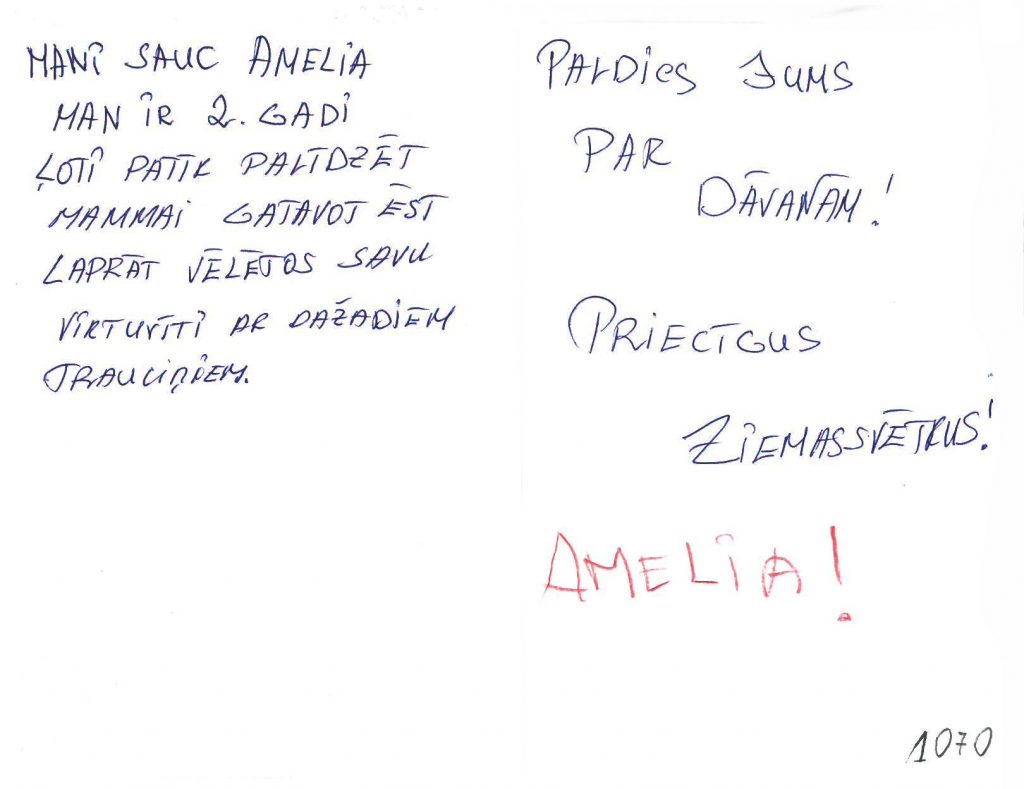 MANI SAUC AMELIA
MAN IR 2. GADI
ĻOTI PATĪK PALĪDZĒT
MAMMAI GATAVOT ĒST
LAPRĀT VĒLĒTOS SAVU
VIRTUVĪTI AR DAŽADIEM
TRAUCIŅIEM.
PALDIES JUMS
PAR
DĀVANĀM!
PRIECĪGUS
ZIEMASSVĒTKUS!
AMELIA!
1070